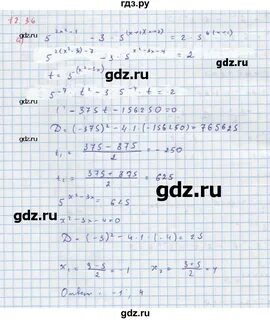 12.36
а) 5^(2x²-1) - 3·5^((x+1)(x+2)) = 2·5^(6(x+1))
5^(2(x²-3)-7) - 3·5^(x²-3x-4) = 2
t = 5^(x²-3x)
5^(-7)·t² - 3·5^(-4)·t = 2
t² - 375t - 156250 = 0
D = (-375)² - 4·1·(-156250) = 765625
t₁ = (375 - 875)/2 = -250
t₂ = (375 + 875)/2 = 625
5^(x²-3x) = 625
x² - 3x - 4 = 0
D = (-3)² - 4·1·(-4) = 25
x₁ = (3-5)/2 = -1 x₂ = (3+5)/2 = 4
Ответ: -1; 4
gdz.ru
gdz.ru
gdz.ru
gdz.ru
gdz.ru
gdz.ru
gdz.ru